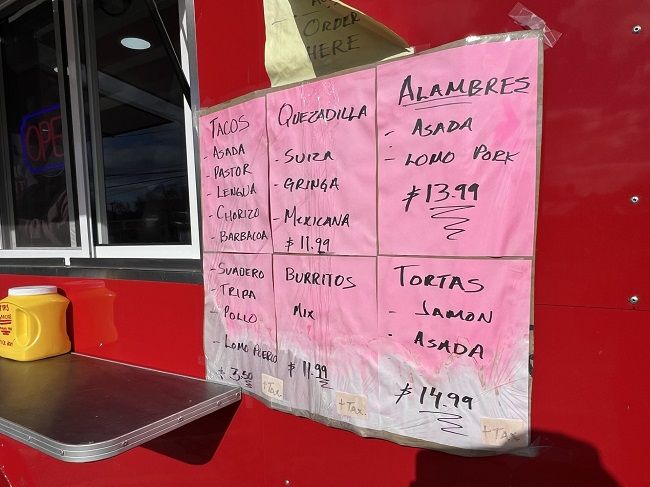 ORDER
HERE
OPE
TIPS
TACOS
- ASADA
- PASTOR
- LENGUA
- CHORIZO
- BARBACOA
- SUADERO
- TRIPA
- POLLO
- LOMO PUERCO
$ 3.50
+TAX
QUEZADILLA
- SUIZA
- GRINGA
- MEXICANA
$ 11.99
BURRITOS
MIX
$ 11.99
+TAX
ALAMBRES
- ASADA
- LOMO PORK
$ 13.99
TORTAS
- JAMON
- ASADA
$ 14.99
+TAX